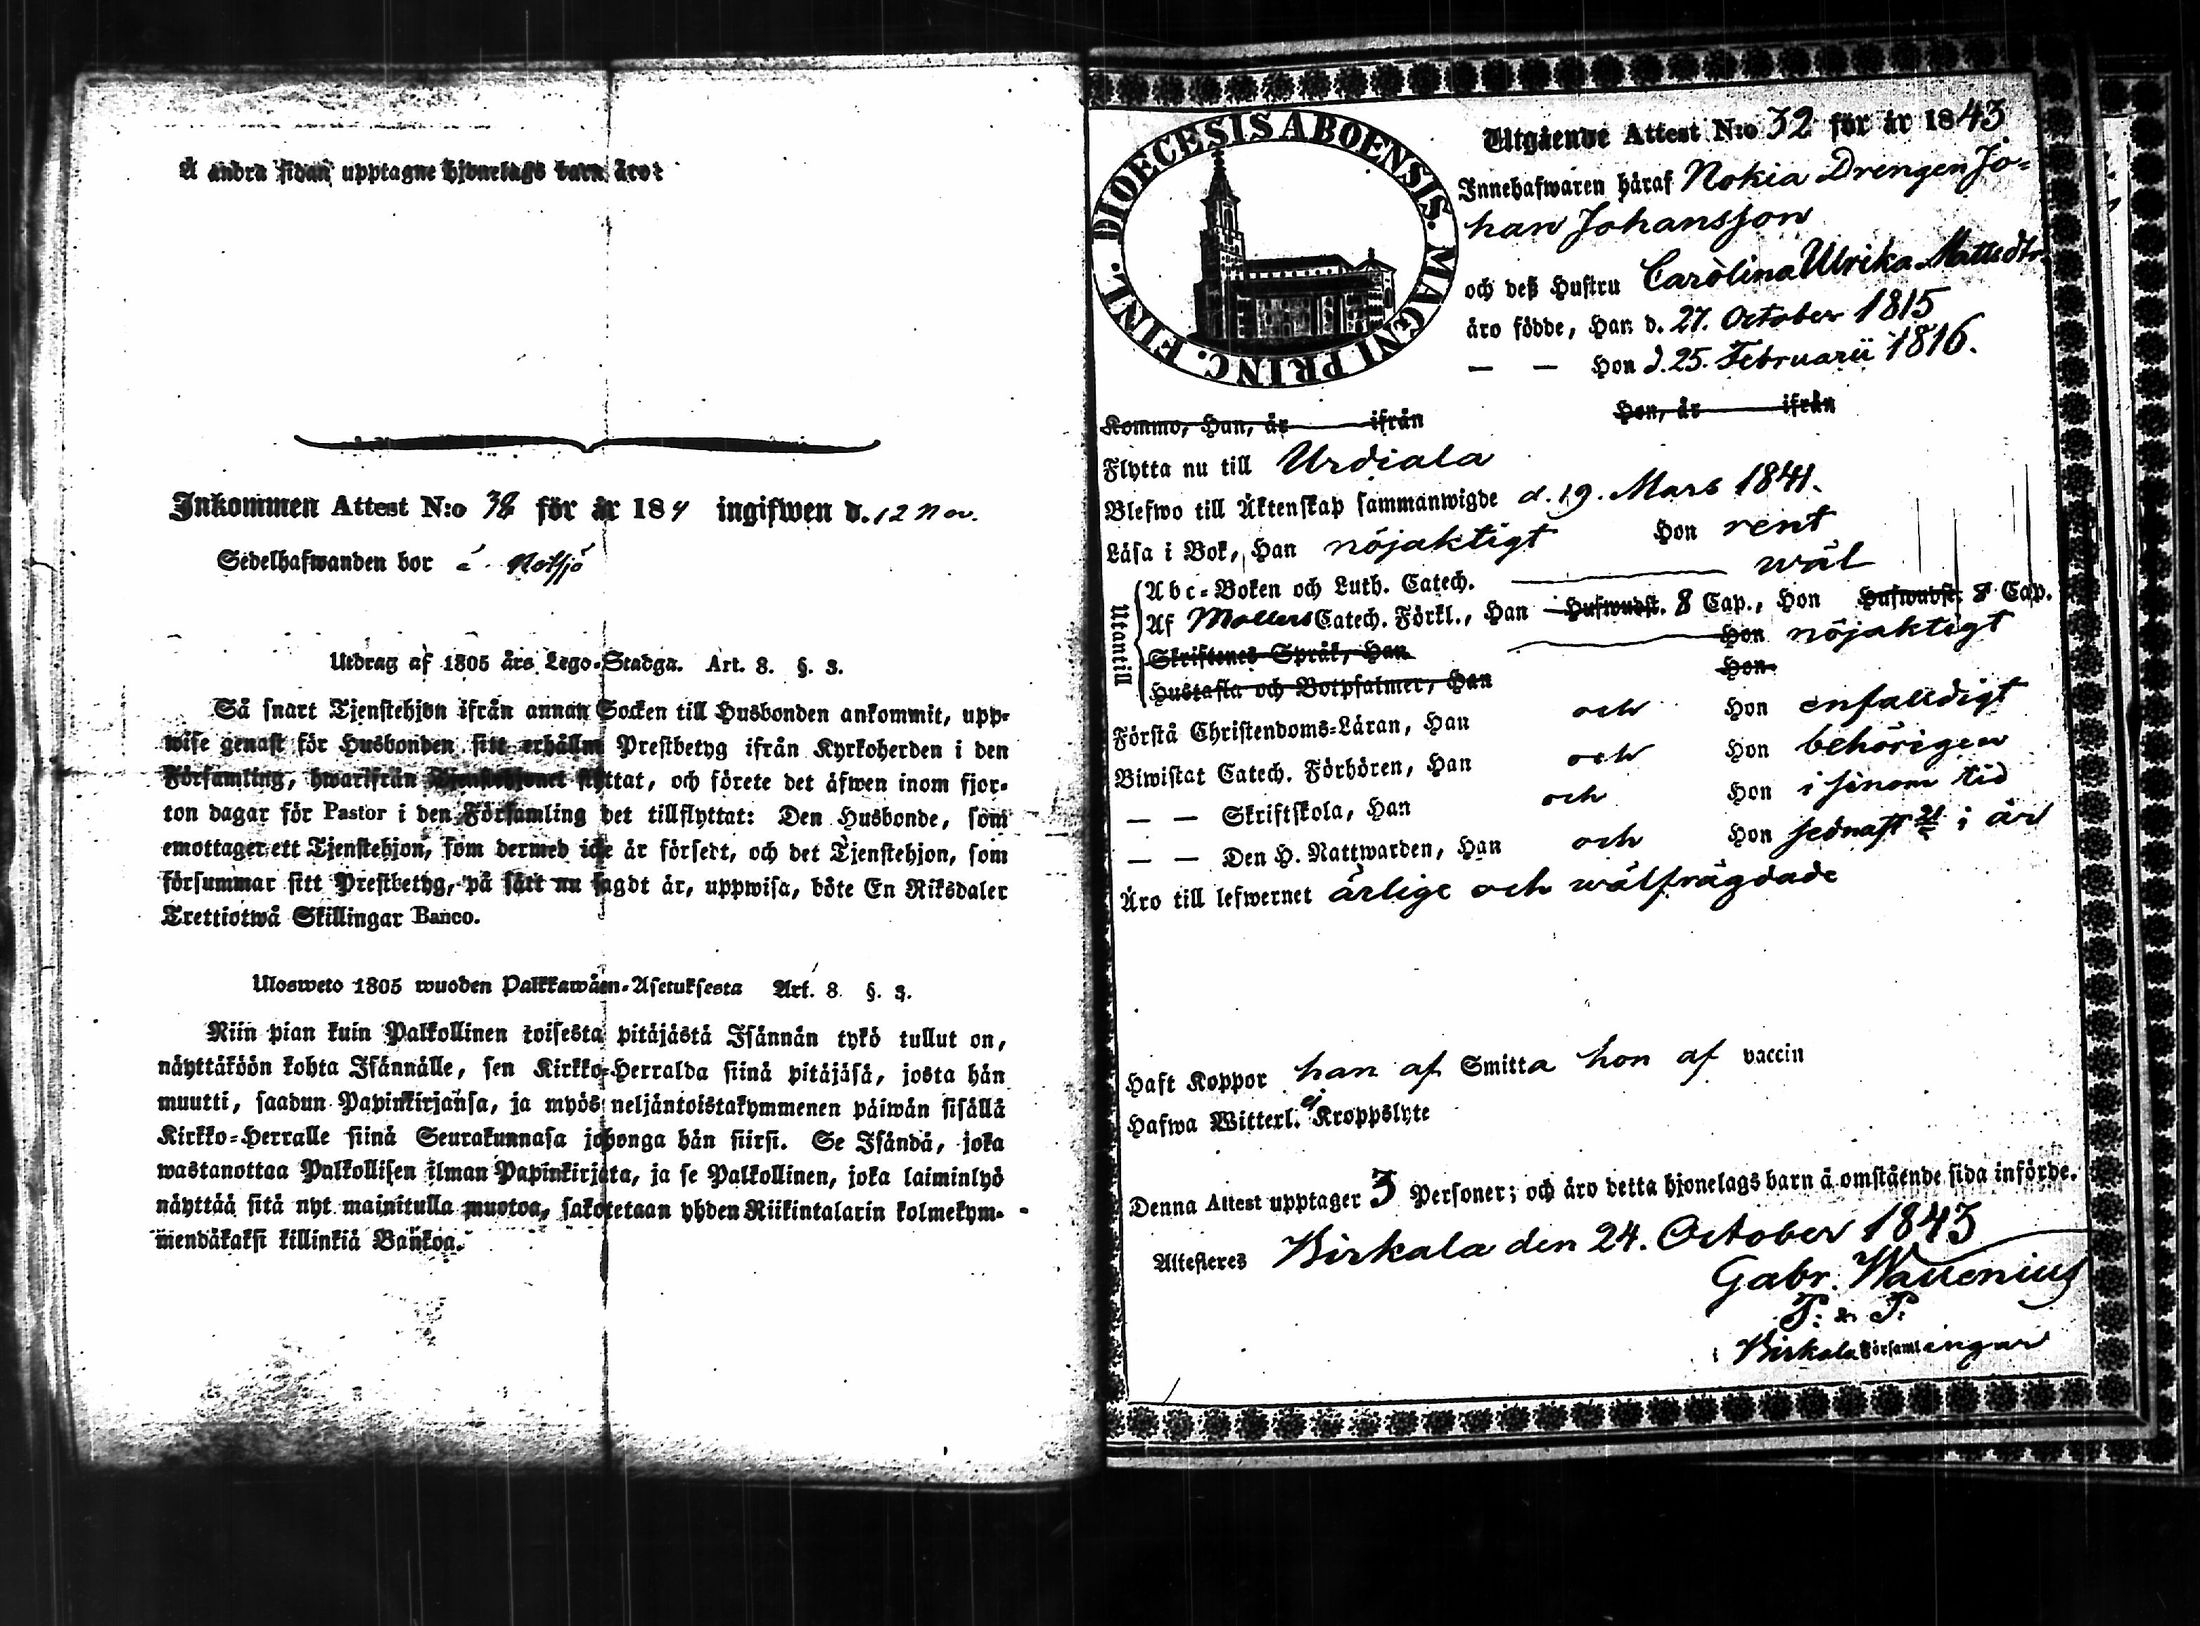 Å andra sidan upptagne hjonelags barn äro:
Inkommen Attest N:o 38 för år 184 ingifwen d. 12 Nov.
Sedelhafwanden bor å Notsjö
Utdrag af 1805 års Lego-Stadga. Art. 8. §. 3.
Så snart Tjenstehjon ifrån annan Socken till Husbonden ankommit, upp-
wise genast för Husbonden sitt erhållne Prestbetyg ifrån Kyrkoherden i den
Församling, hwarifrån Tjenstehjonet flyttat, och förete det äfwen inom fjor-
ton dagar för Pastor i den Församling det tillflyttat: Den Husbonde, som
emottager ett Tjenstehjon, som dermed icke är försedt, och det Tjenstehjon, som
försummar sitt Prestbetyg, på sätt nu sagdt är, uppwisa, böte En Riksdaler
Trettiotwå Skillingar Banco.
Ulosweto 1805 wuoden Palkkawäen-Asetuksesta Art. 8. §. 3.
Niin pian kuin Palkollinen toisesta pitäjästä Isännän tykö tullut on,
näyttäköön kohta Isännälle, sen Kirkko-Herralda siinä pitäjäsä, josta hän
muutti, saadun Papinkirjansa, ja myös neljäntoistakymmenen päiwän sisällä
Kirkko-Herralle siinä Seurakunnasa johonga hän siirsi. Se Isändä, joka
wastanottaa Palkollisen ilman Papinkirjata, ja se Palkollinen, joka laiminlyö
näyttää sitä nyt mainitulla muotoa, sakotetaan yhden Riikintalarin kolmekym-
mendäkaksi killinkiä Bankoa.
DIOECESIS ABOENSIS. MAGNI PRINC. FINL.
Utgående Attest N:o 32 för år 1843
Innehafwaren häraf Nokia Drengen Jo-
han Johansson
och deß Hustru Carolina Ulrika Mattsdtr.
äro födde, Han d. 27. October 1815
— — Hon d. 25. Februarii 1816.
Kommo, Han, år ifrån Hon, år ifrån
Flytta nu till Urdiala
Blefwo till Äktenskap sammanwigde d. 19. Mars 1841.
Läsa i Bok, Han nöjaktigt Hon rent
Utantill
Abc-Boken och Luth. Catech. wäl
Af Mollers Catech. Förkl., Han Hufwudst. 8 Cap., Hon Hufwudst. 8 Cap.
Skriftenes Språk, Han Hon nöjaktigt
Hustafla och Botpsalmer, Han Hon
Förstå Christendoms-Läran, Han och Hon enfalldigt
Biwistat Catech. Förhören, Han och Hon behörigen
— — Skriftskola, Han och Hon i sinom tid
— — Den H. Nattwarden, Han och Hon sednast i år
Äro till lefwernet ärlige och wälfrägdade
Haft Koppor han af Smitta hon af vaccin
Hafwa Witterl. ej Kroppslyte
Denna Attest upptager 3 Personer; och äro detta hjonelags barn å omstående sida införde.
Attesteres Birkala den 24. October 1843
Gabr. Wallenius
P. & P.
i Birkala Församlingar